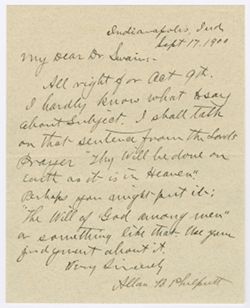 Indianapolis, Ind
Sept 17, 1900
My Dear Dr Swain:-
All right for Oct 9th.
I hardly know what to say
about Subject. I shall talk
on that sentence from the Lord's
Prayer "Thy Will be done on
earth as it is in Heaven"
Perhaps you might put it:
"The Will of God among men"
or something like that. Use your
judgment about it.
Very Sincerely
Allan B Philputt